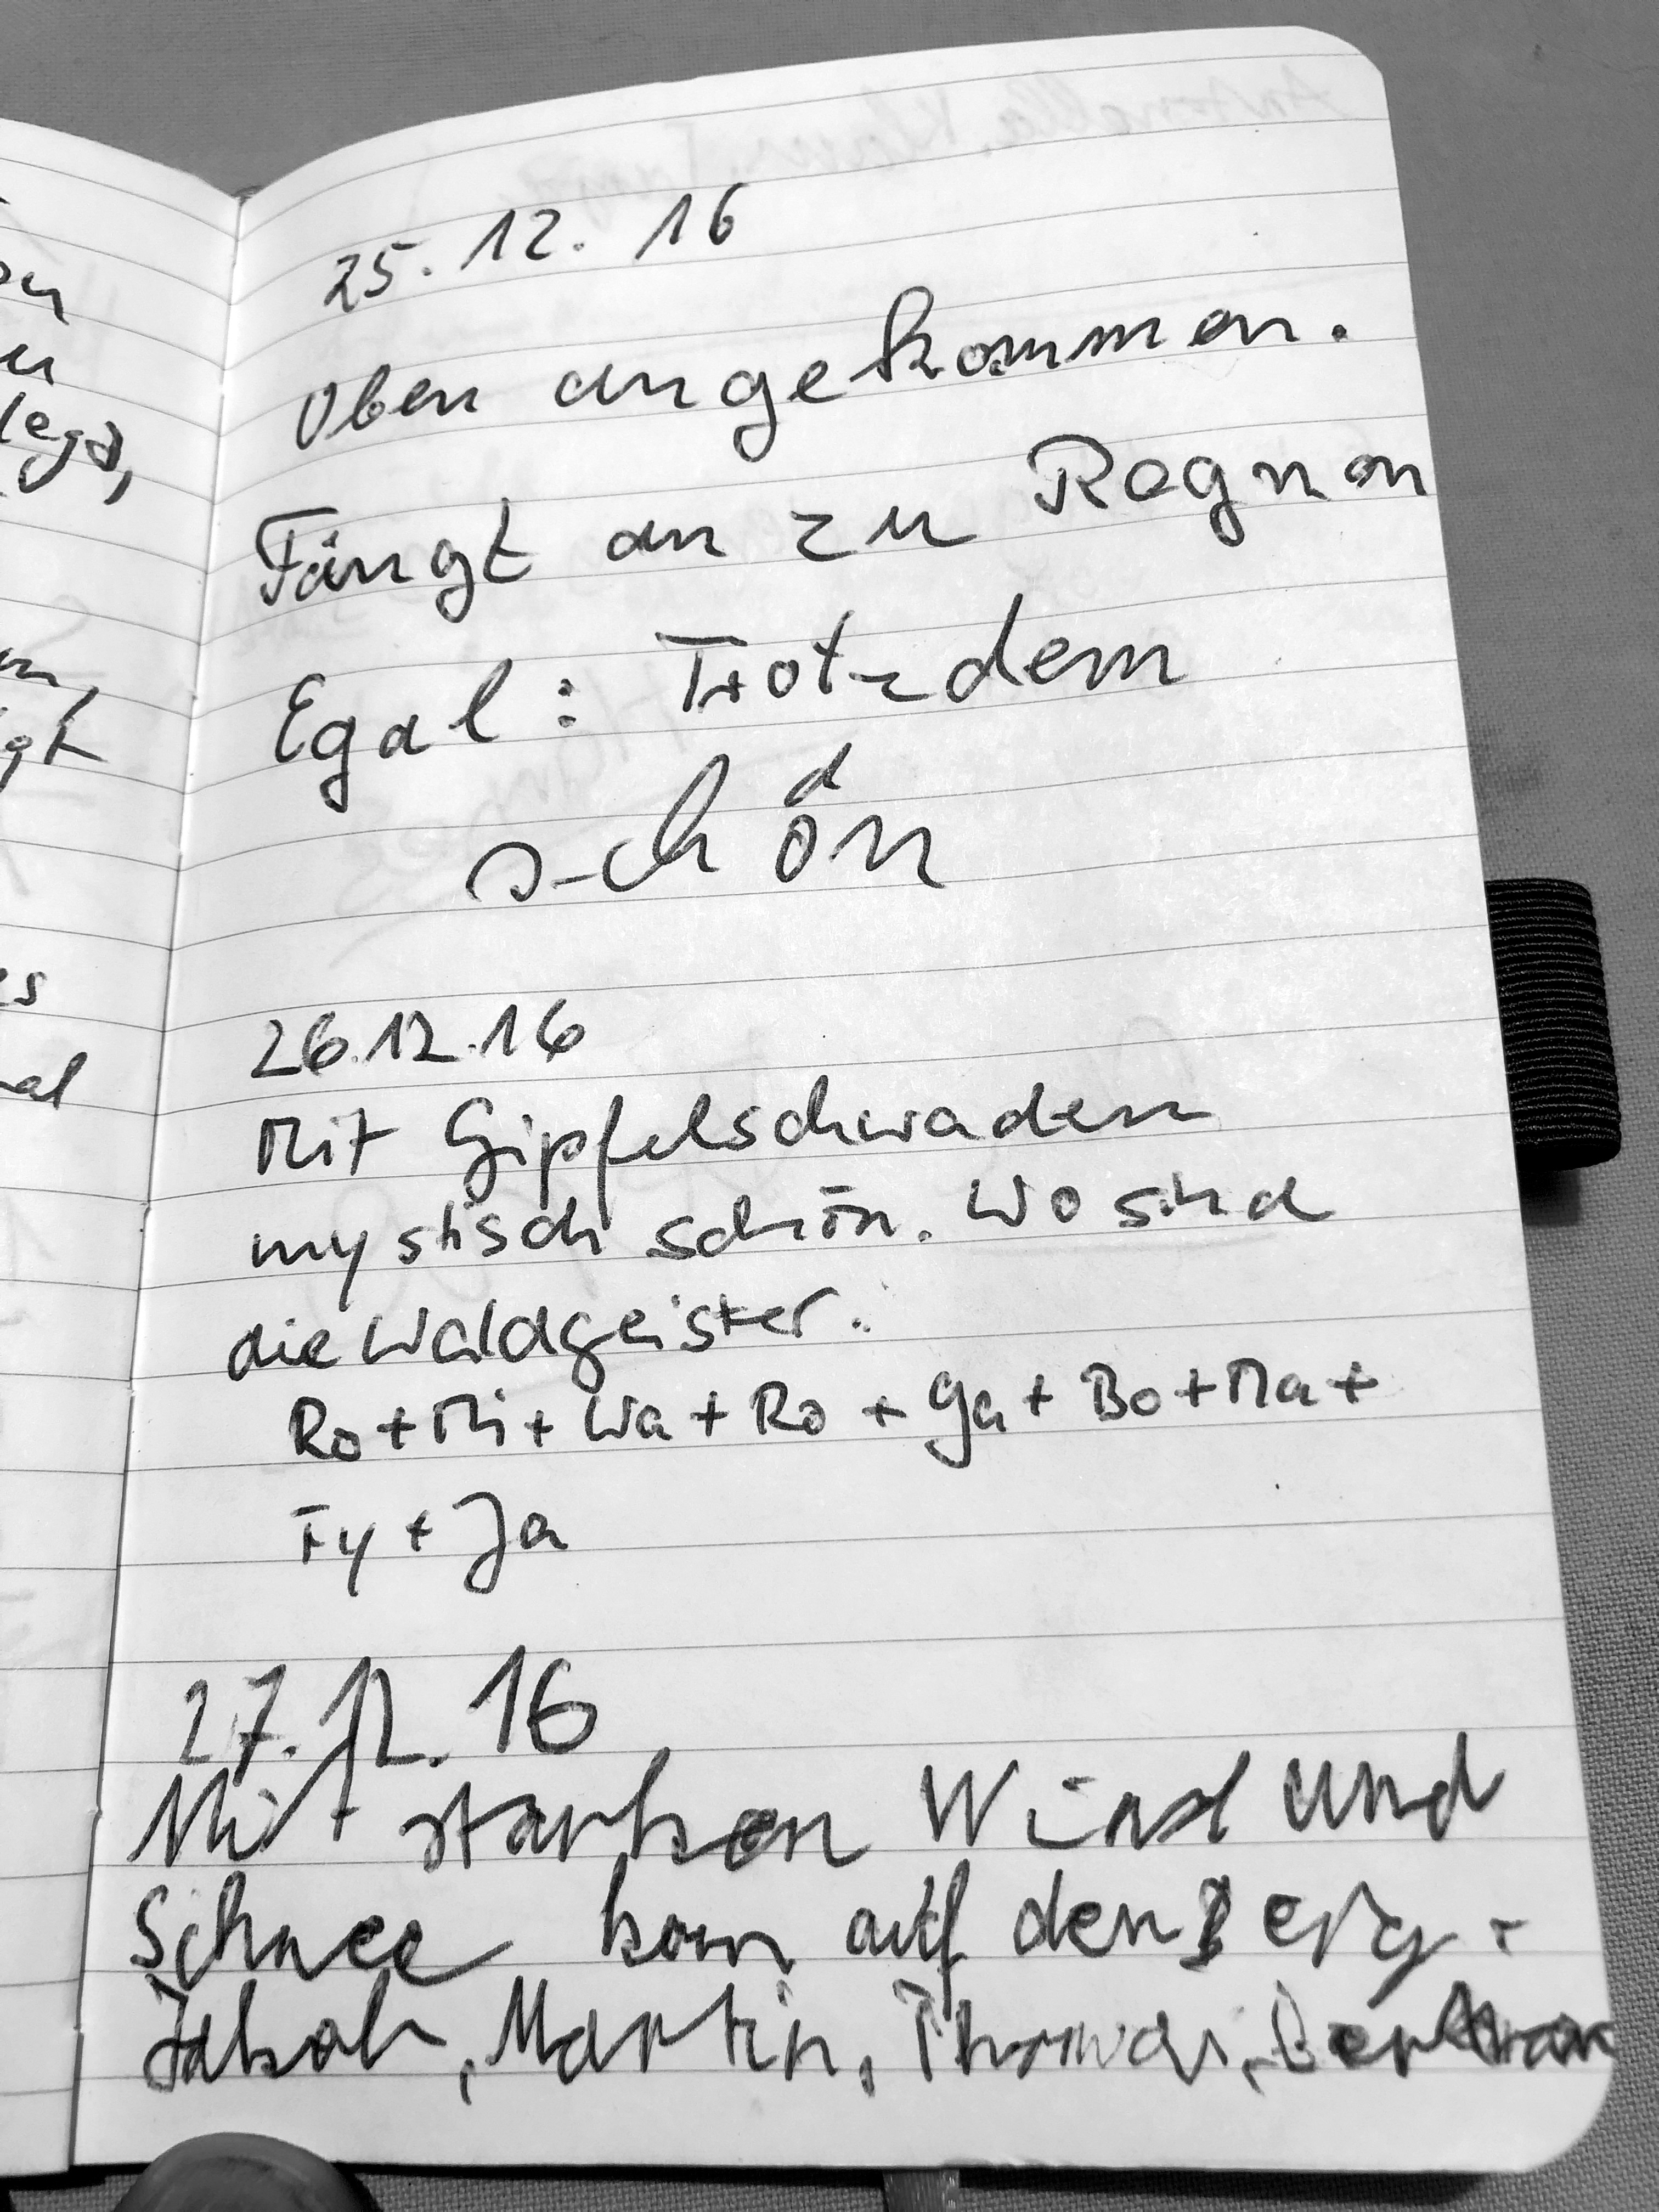 25.12.16
Oben angekommen.
Fängt an zu Regnen
Egal: Trotzdem
schön
26.12.16
Mit Gipfelschwaden
mystisch schön. Wo sind
die Waldgeister.
Ro + Mi + Wa + Ro + Ga + Bo + Ma +
Ty + Ja
27.12.16
Mit starken Wind und
Schnee kam auf den Berg.
Jakob, Martin, Thomas,